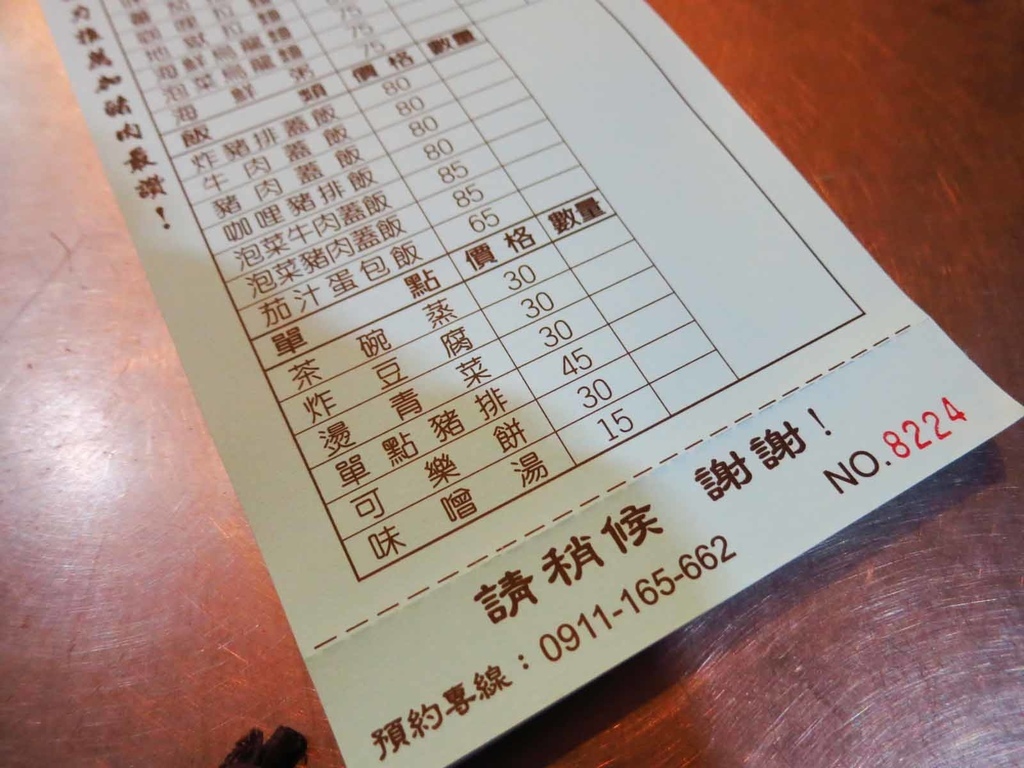 力推薦加豬肉最讚！
地獄拉麵
海鮮烏龍麵 75
泡菜烏龍麵 75
海鮮粥 75
飯類 價格 數量
炸豬排蓋飯 80
牛肉蓋飯 80
豬肉蓋飯 80
咖哩豬排飯 80
泡菜牛肉蓋飯 85
泡菜豬肉蓋飯 85
茄汁蛋包飯 65
單點 價格 數量
茶碗蒸 30
炸豆腐 30
燙青菜 30
單點豬排 45
可樂餅 30
味噌湯 15
請稍候 謝謝！
預約專線：0911-165-662 NO.8224